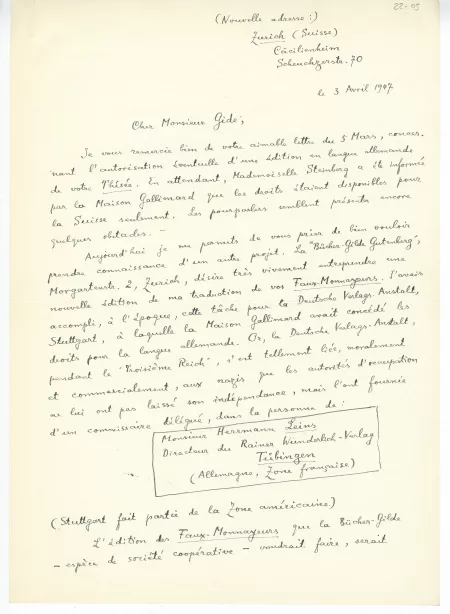 22-05
(Nouvelle adresse :)
Zurich (Suisse)
Cäcilienheim
Scheuchzerstr. 70
le 3 Avril 1947
Cher Monsieur Gide,
Je vous remercie bien de votre aimable lettre du 5 Mars, concer-
nant l'autorisation éventuelle d'une édition en langue allemande
de votre Thésée. En attendant, Mademoiselle Steinberg a été informée
par la Maison Gallimard que les droits étaient disponibles pour
la Suisse seulement. Les pourparlers semblent présenter encore
quelques obstacles. –
Aujourd'hui je me permets de vous prier de bien vouloir
prendre connaissance d'un autre projet. La "Bücher-Gilde Gutenberg",
Morgartenstr. 2, Zurich, désire très vivement entreprendre une
nouvelle édition de ma traduction de vos Faux-Monnayeurs. J'avais
accompli, à l'époque, cette tâche pour la Deutsche Verlags-Anstalt,
Stuttgart, à laquelle la Maison Gallimard avait concédé les
droits pour la langue allemande. Or, la Deutsche Verlags-Anstalt,
pendant le "Troisième Reich", s'est tellement liée, moralement
et commercialement, aux nazis que les autorités d'occupation
ne lui ont pas laissé son indépendance, mais l'ont fournie
d'un commissaire délégué, dans la personne de :
Monsieur Herrmann Leins
Directeur du Rainer Wunderlich-Verlag
Tübingen
(Allemagne, Zone française)
(Stuttgart fait partie de la Zone américaine)
L'édition des Faux-Monnayeurs que la Bücher-Gilde
– espèce de société coopérative – voudrait faire, serait